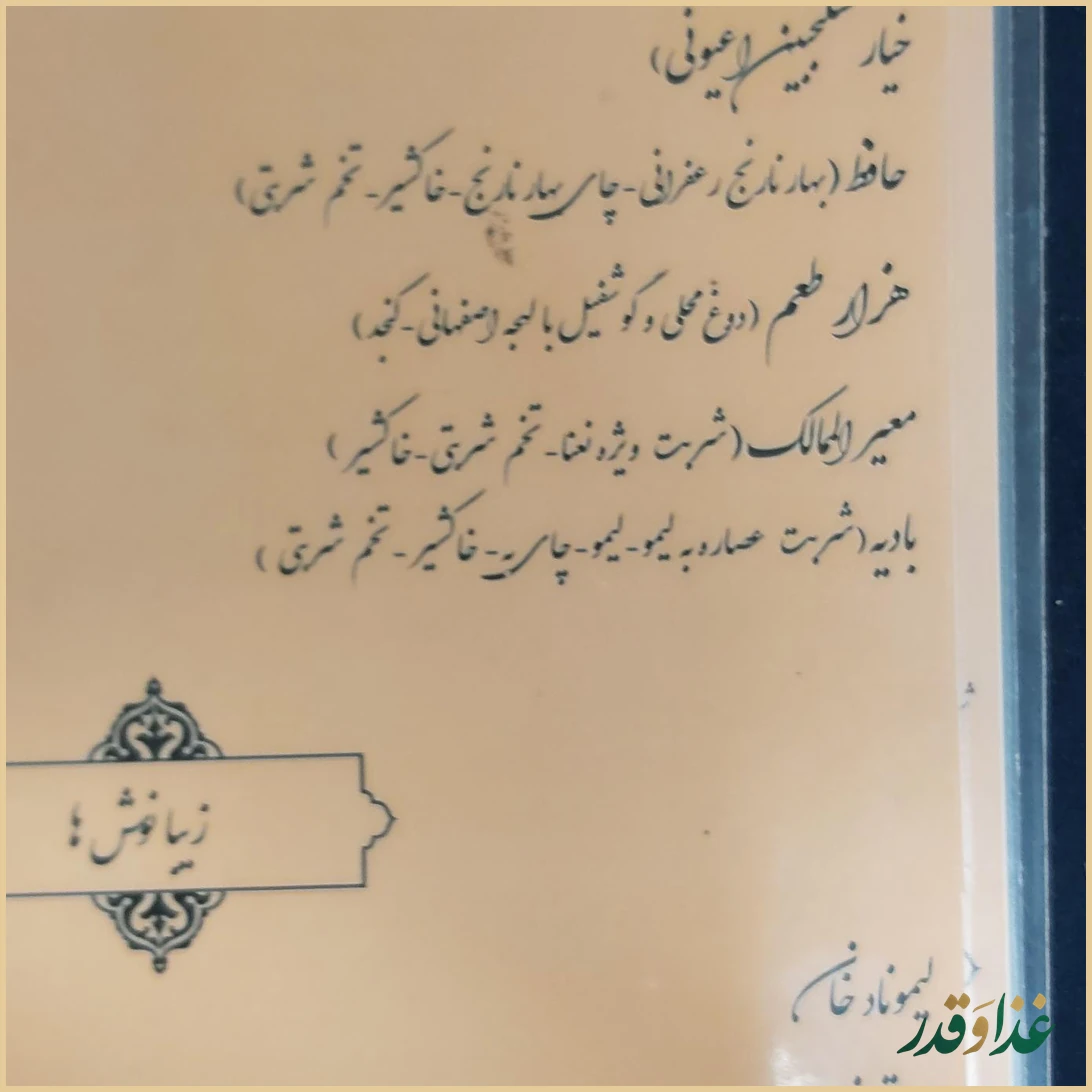 خیار سکنجبین اعیونی)
حافظ (بهار نارنج زعفرانی-چای بهار نارنج-خاکشیر-تخم شربتی)
هزار طعم (دوغ محلی و گوشفیل با لهجه اصفهانی-کنجد)
معیر الممالک (شربت ویژه نعنا-تخم شربتی-خاکشیر)
بادیه (شربت عصاره به لیمو-لیمو-چای به-خاکشیر-تخم شربتی)
زیبا نوش ها
لیموناد خان
غذا وَ قدر